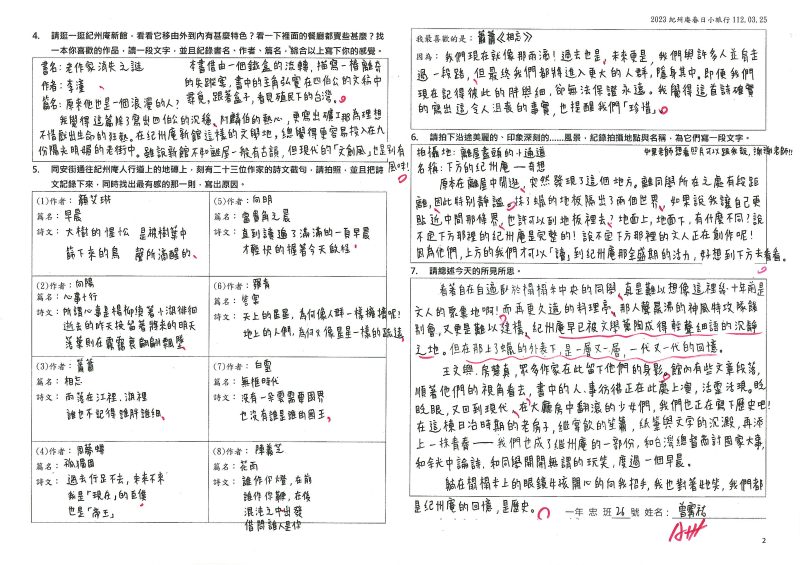 2023 紀州庵春日小旅行 112.03.25
4. 請逛一逛紀州庵新館，看看它移由外到內有甚麼特色？看一下裡面的餐廳都賣些甚麼？找
一本你喜歡的作品，讀一段文字，並且紀錄書名、作者、篇名，綜合以上寫下你的感覺。
書名：老作家消失之謎
作者：李潼
篇名：原來他也是一個浪漫的人？
本書借由一個鐵盒的流轉，描寫一樁離奇
的失蹤案，書中的主角弘實在四伯公的文稿中
尋覓，跟著盒子，看見殖民下的台灣。
我覺得這篇除了寫出四伯公的沉穩、阿鸝伯的熱心，更寫出礦工那為理想
不惜獻出生命的狂熱。在紀州庵新館這樣的文學地，總覺得更容易投入在九
份陽光明媚的老街中。雖說新館不如離屋一般有古韻，但現代的「文創風」也是別有
風味！
5. 同安街通往紀州庵人行道上的地磚上，刻有二十三位作家的詩文截句，請拍照，並且把詩
文記錄下來，同時找出最有感的那一則，寫出原因。
(1)作者：顏艾琳
篇名：早晨
詩文：大樹的惺忪 是被樹葉中
篩下來的鳥 聲所滴醒的。
(5)作者：向明
篇名：富貴角之晨
詩文：直到讀過了滿滿的一頁早晨
才輕快的握著今天啟程
(2)作者：向陽
篇名：心事十行
詩文：所謂心事是楊柳繞著小湖徘徊
逝去的昨天挨留著將來的明天
落葉則在霧靄裏翩翩飄墜
(6)作者：碧果
詩文：天上的星星，為何像人群一樣擁擠呢！
地上的人們，為何又像星星一樣的疏遠
(3)作者：蕭蕭
篇名：相忘
詩文：雨落在江裡、湖裡
誰也不記得誰胖誰細
(7)作者：白靈
篇名：無框時代
詩文：沒有一朵雲需要國界
也沒有誰是誰的國王
(4)作者：周夢蝶
篇名：孤獨國
詩文：過去佇足不去，未來不來
我是「現在」的臣僕
也是「帝王」
(8)作者：陳義芝
篇名：花雨
詩文：誰作你燈，在前
誰作你鞭，在後
混沌之中出發
借問誰人是你
我最喜歡的是：蕭蕭《相忘》
因為：我們現在就像那雨滴！過去也是、未來更是，我們與許多人並肩走
過一段路，但最終我們都將進入更大的人群，隱身其中。即便我們
現在記得彼此的胖與細，卻無法保證永遠。我覺得這首詩確實
的寫出這令人沮喪的事實，也提醒我們「珍惜」。
6. 請拍下沿途美麗的、印象深刻的.....風景，紀錄拍攝地點與名稱，為它們寫一段文字。
拍攝地：離屋盡頭的小通道
如果老師想看照片可以跟我說，謝謝老師!!!
名稱：下方的紀州庵——奇想
原本在離屋中閒逛，突然發現了這個地方。離同學所在之處有段距
離，因此特別靜謐。抹了蠟的地板隔出了兩個世界，如果說我讓自己更
貼近中間那條界，也許可以到地板裡去？地面上，地面下，有什麼不同？說
不定下方那裡的紀州庵是完整的！說不定下方那裡的文人正在創作呢！
因為他們，上方的我們才可以「讀」到紀州庵那全盛期的活力，好想到下方去看看。
7. 請總述今天的所見所思。
看著自在自適臥於榻榻米中央的同學，真是難以想像這裡幾十年前是
文人的聚集地啊！而再更久遠的料理亭、那人聲鼎沸的神風特攻隊餞
別會，又更是難以建構。紀州庵早已被文學薰陶成得輕聲細語的沉靜
之地。但在那上了蠟的外表下，是一層又一層，一代又一代的回憶。
王文興、房慧真，眾多作家在此留下他們的身影。館的有些文章段落，
順著他們的視角看去，書中的人、事彷彿正在此處上演，活靈活現。眨
眨眼，又回到現代。在大廳房中翻滾的少女們，我們也正在寫下歷史吧！
在這棟日治時期的老房子，繼宴飲的笙簫，紙筆與文字的沉澱，再添
上一抹青春——我們也成了紀州庵的一部份，和台灣總督商討國家大事，
和余光中論詩，和同學開開無謂的玩笑，度過一個早晨。
躺在榻榻米上的眼鏡女孩開心的向我招手，我也對著她笑，我們都
是紀州庵的回憶，是歷史。
一年 忠 班 26 號 姓名：
A++
2